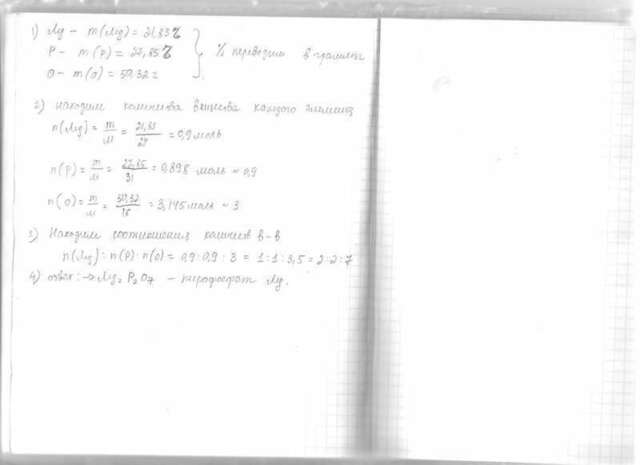 1) Mg - m(Mg) = 21,83%
P - m(P) = 27,85% } % переводим в граммы
O - m(O) = 50,32 г
2) находим количества вещества каждого элемента
n(Mg) = m/M = 21,83/24 = 0,9 моль
n(P) = m/M = 27,85/31 = 0,898 моль ~ 0,9
n(O) = m/M = 50,32/16 = 3,145 моль ~ 3
3) Находим соотношения количеств в-в
n(Mg) : n(P) : n(O) = 0,9 : 0,9 : 3 = 1 : 1 : 3,5 = 2 : 2 : 7
4) ответ: → Mg₂P₂O₇ - пирофосфат Mg.